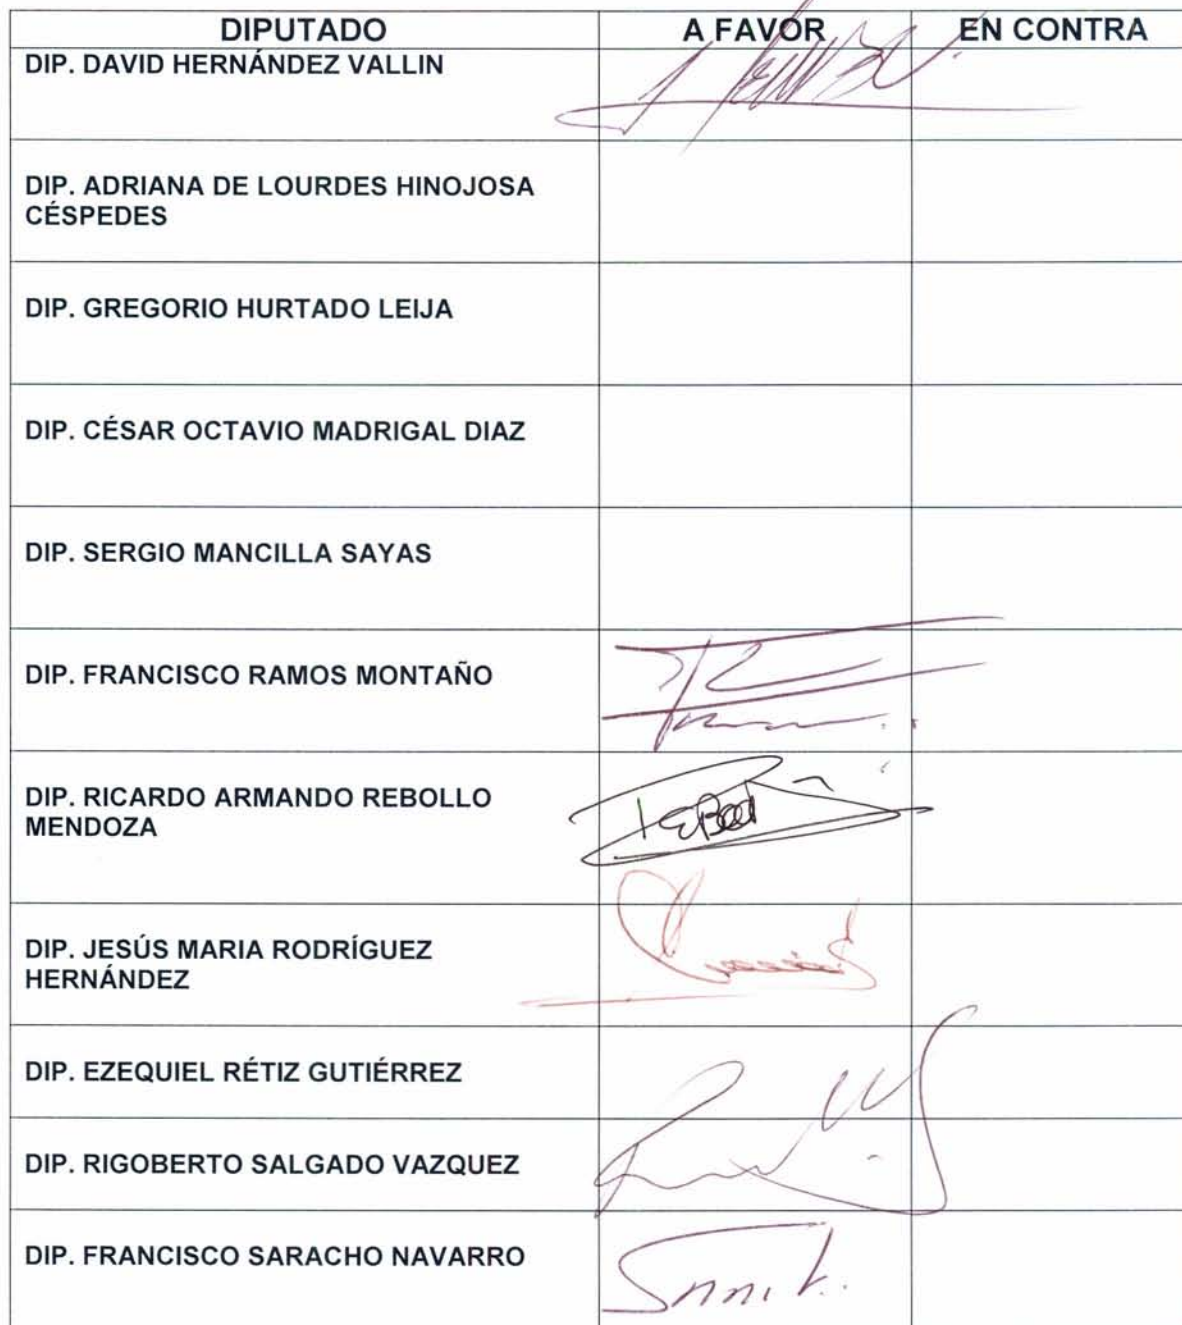 DIPUTADO A FAVOR EN CONTRA
DIP. DAVID HERNÁNDEZ VALLIN
DIP. ADRIANA DE LOURDES HINOJOSA
CÉSPEDES
DIP. GREGORIO HURTADO LEIJA
DIP. CÉSAR OCTAVIO MADRIGAL DIAZ
DIP. SERGIO MANCILLA SAYAS
DIP. FRANCISCO RAMOS MONTAÑO
DIP. RICARDO ARMANDO REBOLLO
MENDOZA
DIP. JESÚS MARIA RODRÍGUEZ
HERNÁNDEZ
DIP. EZEQUIEL RÉTIZ GUTIÉRREZ
DIP. RIGOBERTO SALGADO VAZQUEZ
DIP. FRANCISCO SARACHO NAVARRO